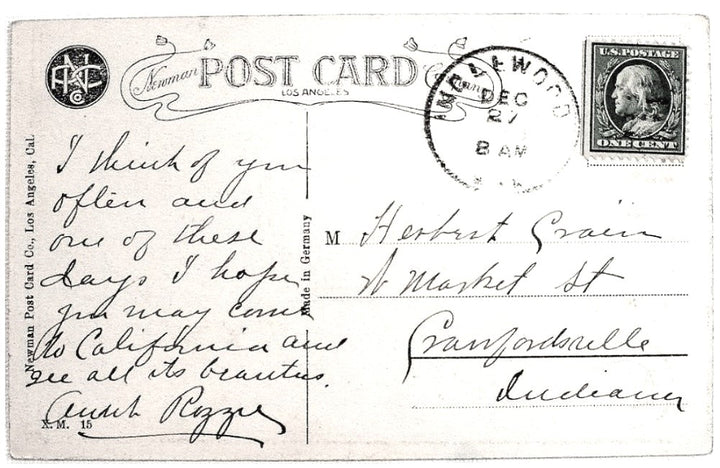 Newman
POST CARD
LOS ANGELES
DEC
27
8 AM
U.S. POSTAGE
ONE CENT
Newman Post Card Co., Los Angeles, Cal.
Made in Germany
I think of you
often and
one of these
days I hope
you may come
to California and
see all its beauties.
Aunt
X. M. 15
M Herbert Crain
W Market St
Crawfordsville
Indiana